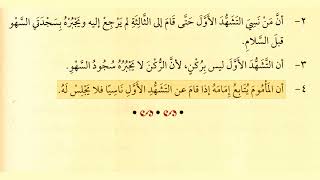 ٢- أنَّ مَنْ نَسِيَ التَشَهُّدَ الأوَّلَ حَتَّى قَامَ إلى الثَّالِثَةِ لم يَرْجِعْ إليه ويَجْبُرُهُ بِسَجْدَتَيِ السَّهْوِ
قبلَ السَّلامِ.
٣- أن التَّشَهُّدَ الأوَّلَ ليس بِرُكْنٍ، لأنَّ الرُّكْنَ لا يَجْبُرُهُ سُجُودُ السَّهْوِ.
٤- أن المَأْمُومَ يُتَابِعُ إمَامَهُ إذا قامَ عن التَّشَهُّدِ الأوَّلِ نَاسِيًا فلا يَجْلِسْ لَهُ.